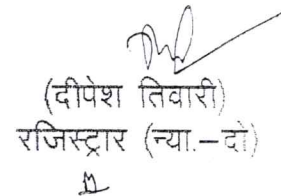 (दीपेश तिवारी)
रजिस्ट्रार (न्या.-दो)